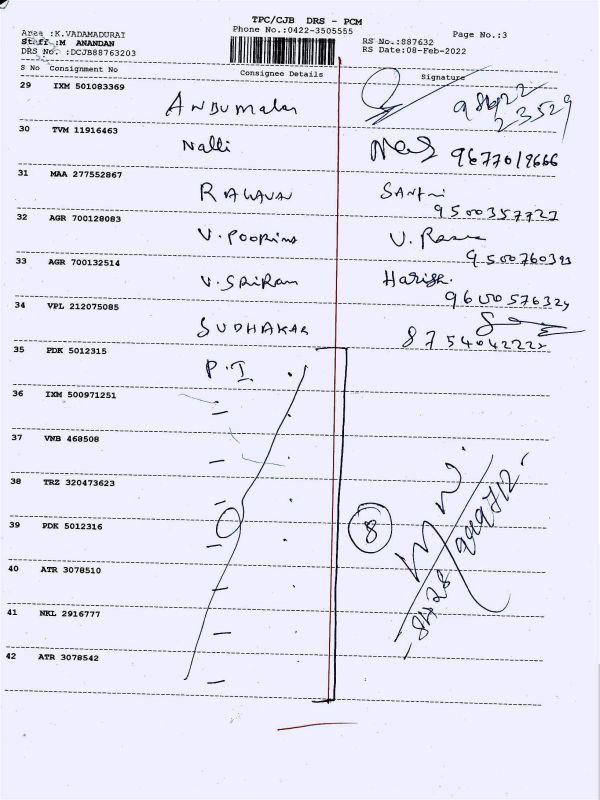 TPC/CJB DRS - PCM
Area :K.VADAMADURAI Phone No.:0422-3505555 Page No.:3
Staff :M ANANDAN RS No.:887632
DRS No. :DCJB88763203 RS Date:08-Feb-2022
S No Consignment No Consignee Details Signature
29 IXM 501083369
ANBUmalar 98422
23529
30 TVM 11916463
Nalli 9677019666
31 MAA 277552867
RAGAVAN SANTHI
9500357727
32 AGR 700128083
V. POORIMA V. Rama
9500760393
33 AGR 700132514
V. SAIRAM Harish.
9600576324
34 VPL 212075085
SUDHAKAR
8754042222
35 PDK 5012315
P. I.
36 IXM 500971251
37 VNB 468508
38 TRZ 320473623
39 PDK 5012316
8
40 ATR 3078510
41 NKL 2916777
42 ATR 3078542